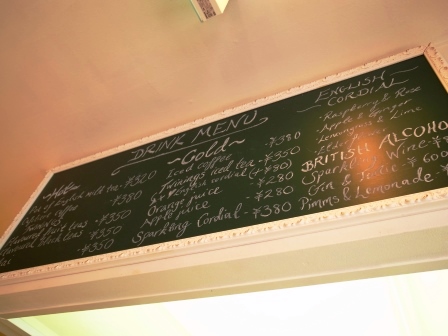 DRINK MENU
~Hot~
milk tea - ¥320
coffee - ¥380
teas - ¥350
fruit teas - ¥350
black teas - ¥350
~Cold~
Iced coffee - ¥380
Twinings iced tea - ¥350
English cordial (+¥80)
Orange juice - ¥280
Apple juice - ¥280
Sparkling Cordial - ¥380
ENGLISH
CORDIAL
Raspberry & Rose
Apple & Ginger
Lemongrass & Lime
BRITISH ALCOHO
Sparkling Wine - ¥
Gin & Tonic - ¥600
Pimms & Lemonade - ¥